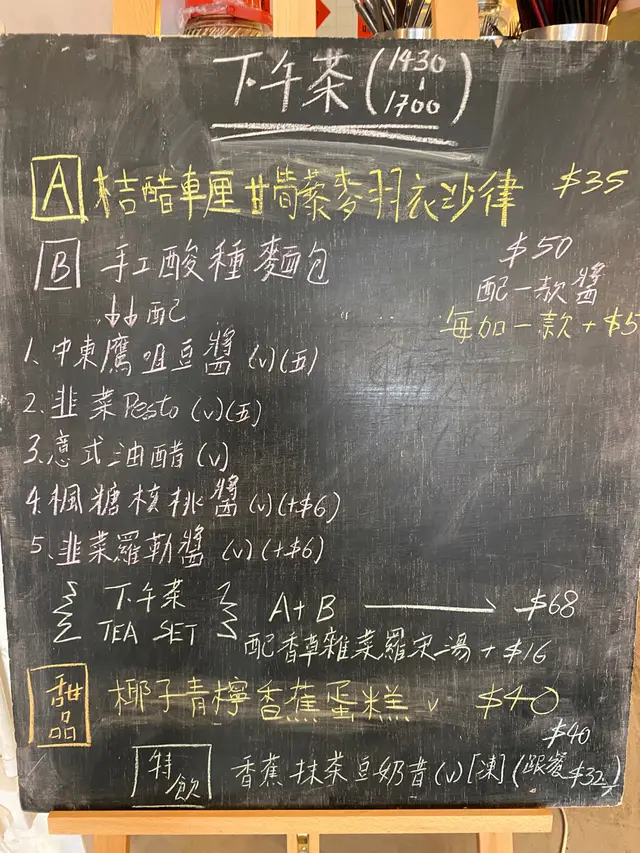 下午茶(1430-1700)
A 桔醋車厘甘荀藜麥羽衣沙律 $35
B 手工酸種麵包 $50
↓↓配 配一款醬
每加一款+$5
1. 中東鷹咀豆醬(v)(五)
2. 韭菜Pesto(v)(五)
3. 意式油醋(v)
4. 楓糖核桃醬(v)(+$6)
5. 韭菜羅勒醬(v)(+$6)
下午茶 TEA SET A+B → $68
配香草雜菜羅宋湯+$16
甜品 椰子青檸香蕉蛋糕 v $40
特飲 香蕉抹茶豆奶昔(v)[凍] $40 (跟餐$32)